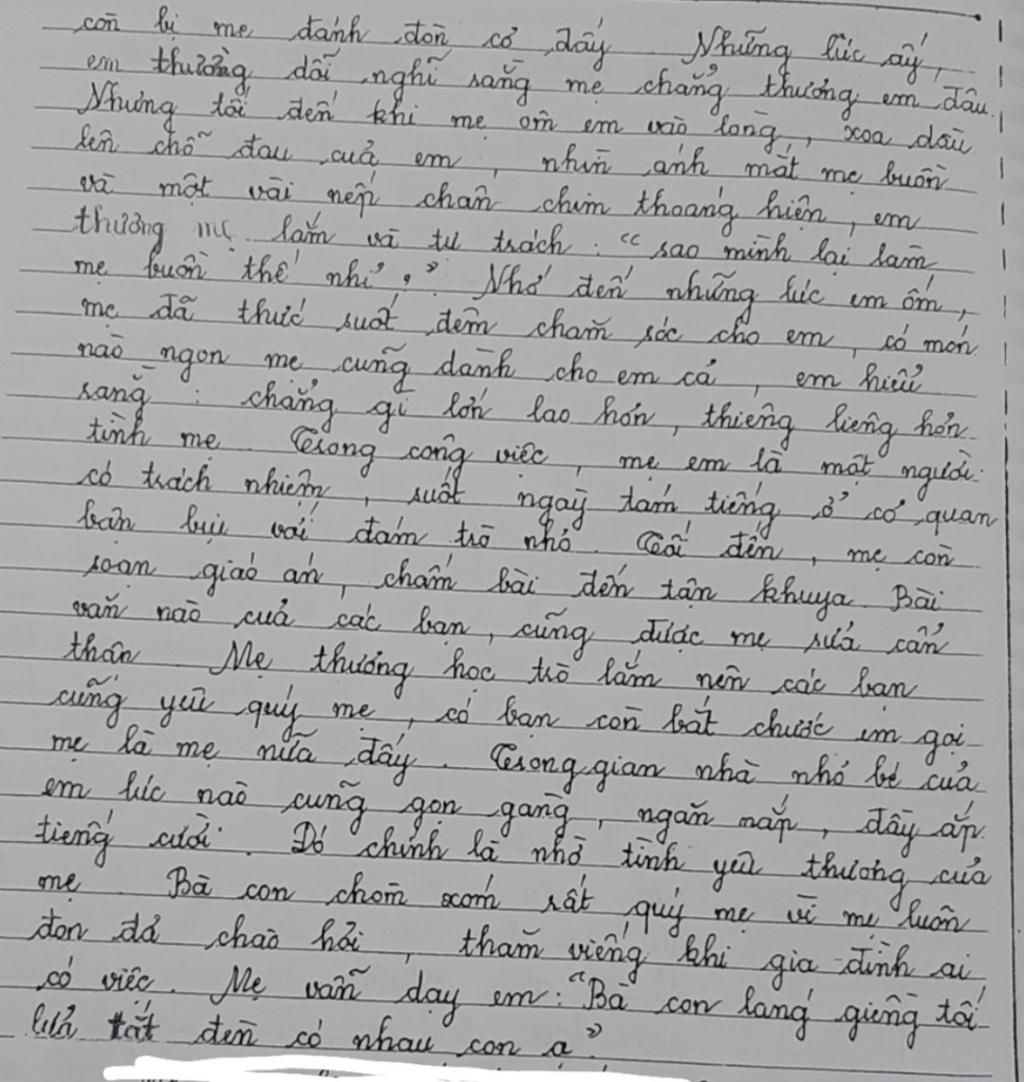 còn bị mẹ đánh đòn cơ đấy. Những lúc ấy,
em thường dỗi nghĩ rằng mẹ chẳng thương em đâu.
Nhưng tối đến khi mẹ ôm em vào lòng, xoa dầu
lên chỗ đau của em, nhìn ánh mắt mẹ buồn
và một vài nếp chân chim thoáng hiện, em
thương mẹ lắm và tự trách: "sao mình lại làm
mẹ buồn thế nhỉ?" Nhớ đến những lúc em ốm,
mẹ đã thức suốt đêm chăm sóc cho em, có món
nào ngon mẹ cũng dành cho em cả, em hiểu
rằng: chẳng gì lớn lao hơn, thiêng liêng hơn
tình mẹ. Trong công việc, mẹ em là một người
có trách nhiệm, suốt ngày tám tiếng ở cơ quan
bận bịu với đám trò nhỏ. Tối đến, mẹ còn
soạn giáo án, chấm bài đến tận khuya. Bài
văn nào của các bạn, cũng được mẹ sửa cẩn
thận. Mẹ thương học trò lắm nên các bạn
cũng yêu quý mẹ, có bạn còn bắt chước em gọi
mẹ là mẹ nữa đấy. Trong gian nhà nhỏ bé của
em lúc nào cũng gọn gàng, ngăn nắp, đầy ắp
tiếng cười. Đó chính là nhờ tình yêu thương của
mẹ. Bà con chòm xóm rất quý mẹ vì mẹ luôn
đon đả chào hỏi, thăm viếng khi gia đình ai
có việc. Mẹ vẫn dạy em: "Bà con láng giềng tối
lửa tắt đèn có nhau con ạ"